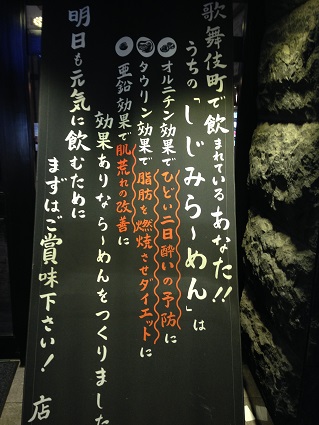 歌舞伎町で飲まれているあなた!!
うちの「しじみら〜めん」は
オルニチン効果でひどい二日酔いの予防に
タウリン効果で脂肪を燃焼させダイエットに
亜鉛効果で肌荒れの改善に
効果ありなら〜めんをつくりました
明日も元気に飲むために
まずはご賞味下さい!
店